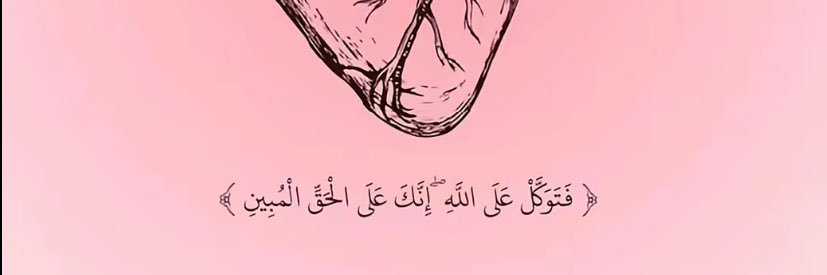 ﴿ فَتَوَكَّلْ عَلَى اللَّهِ ۖ إِنَّكَ عَلَى الْحَقِّ الْمُبِينِ ﴾